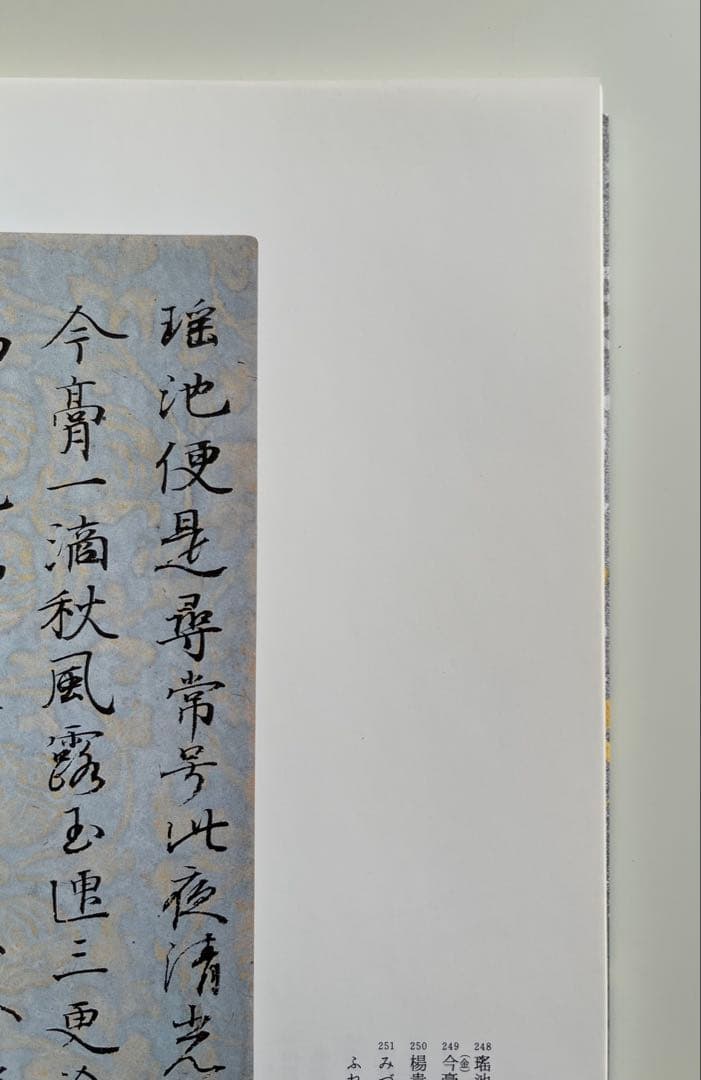 瑶池便是尋常号此夜清光
今膏一滴秋風露玉匣三更
248 瑤池
249 今(金)膏
250 楊貴
251 みづ
ふれ